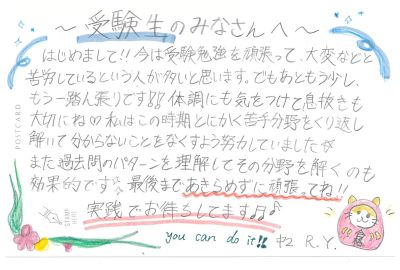 ～受験生のみなさんへ～
はじめまして!! 今は受験勉強を頑張って、大変などと
苦労しているという人が多いと思います。でもあともう少し、
もう一踏ん張りです!! 体調にも気をつけて息抜きも
大切にね♡ 私はこの時期とにかく苦手分野をくり返し
解いて分からないことをなくすよう努力していましたが
また過去問のパターンを理解してその分野を解くのも
効果的です 最後まであきらめずに頑張ってね!!
実践でお待ちしてます♫♪
you can do it!! 中2 R.Y.
POSTCARD
STAMP HERE
合格